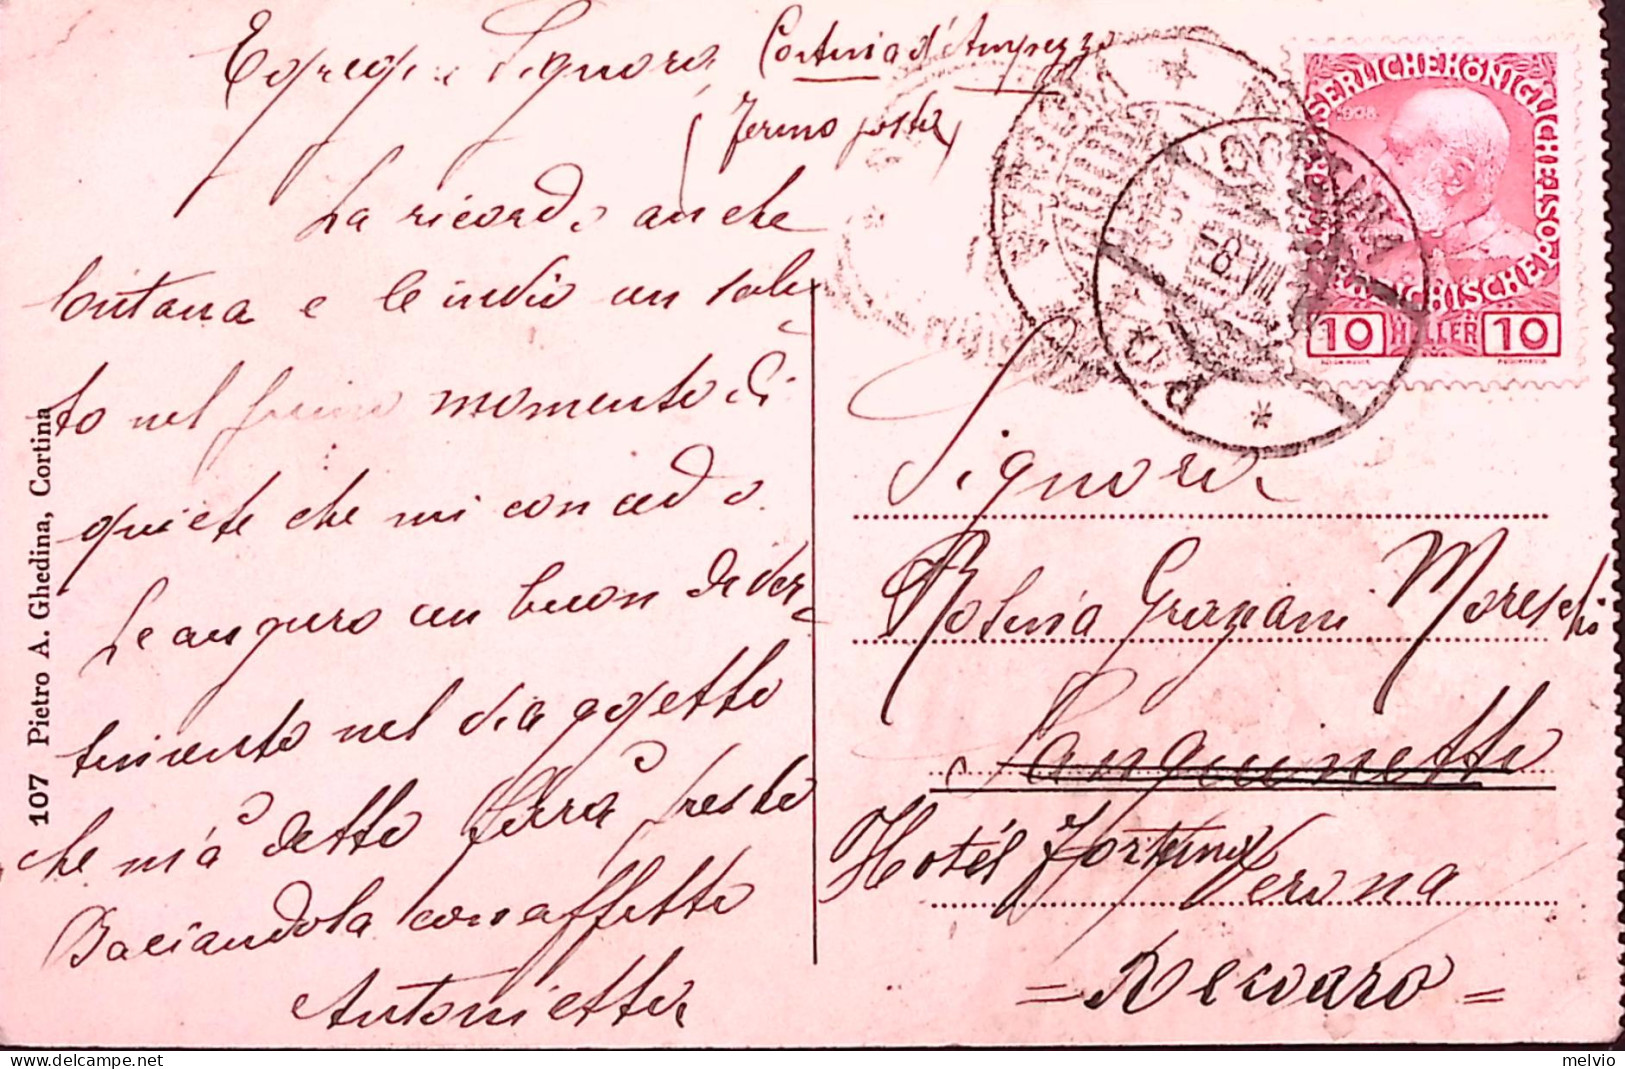 Egregia Signora
Cortina d'Ampezzo
(fermo posta)
La ricordo anche
lontana e le invio un salu-
to nel primo momento di
quiete che mi concedo.
Le auguro un buon diver-
timento nel viaggetto
che m'à detto farà presto
Baciandola con affetto
Antonietta
107 Pietro A. Ghedina, Cortina
KAISERLICHE KÖNIGLICHE ÖSTERREICHISCHE POST
1908
10 HELLER 10
-8.VIII
Signora
Graziani Moreschi
Sanguinetto
Hotél Fortuna
Verona
= Recoaro =
melvio